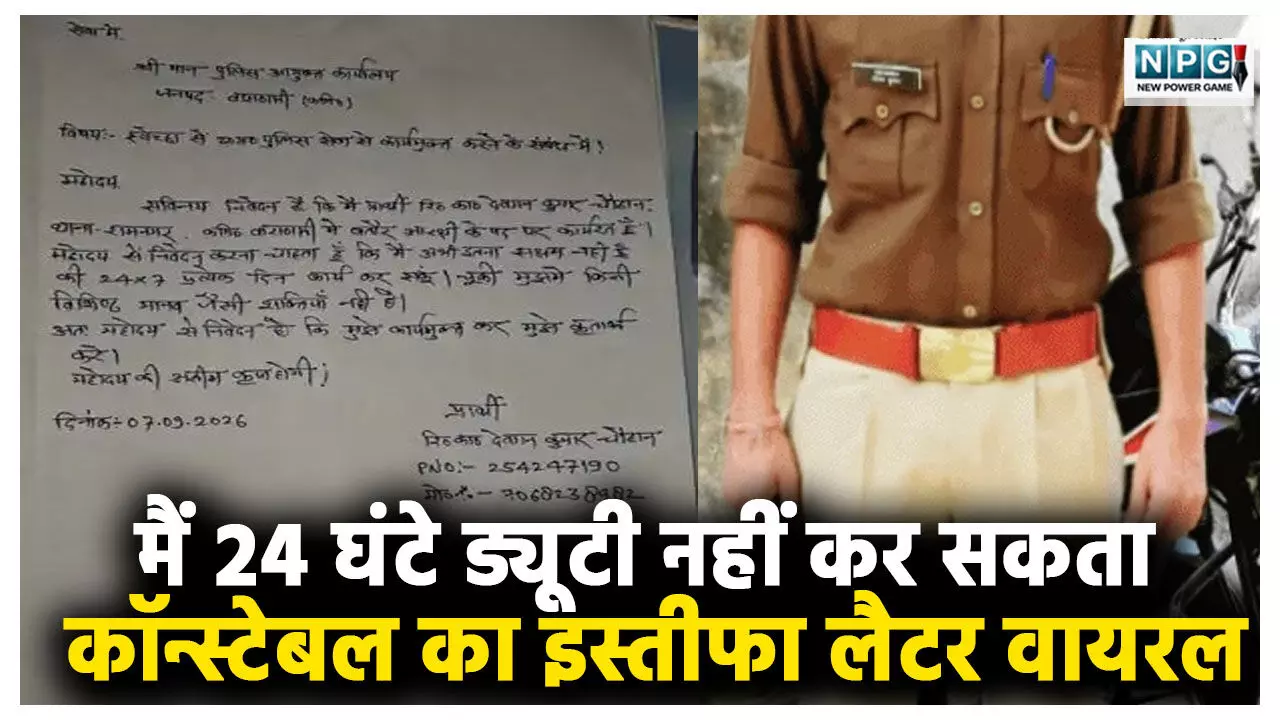 सेवा में,
श्री मान पुलिस आयुक्त कार्यालय
जनपद- वाराणसी (कमि०)
विषय:- स्वेच्छा से पुलिस सेवा से कार्यमुक्त करने के संबंध में।
महोदय
सविनय निवेदन है कि मैं प्रार्थी रि० का० देवान कुमार चौहान,
थाना- रामनगर, कमि० वाराणसी में बतौर आरक्षी के पद पर कार्यरत हूँ।
महोदय से निवेदन करना चाहता हूँ कि मैं अभी इतना सक्षम नहीं हूँ
की 24x7 प्रत्येक दिन कार्य कर सकूं। चूकी मुझमे किसी
विशिष्ट मानव जैसी शक्तियाँ नहीं है।
अतः महोदय से निवेदन है कि मुझे कार्यमुक्त कर मुझे कृतार्थ
करे।
महोदय की असीम कृपा होगी।
दिनांक:- 07.09.2026
प्रार्थी
रि० का० देवान कुमार चौहान
PNO:- 254247190
मो० नं०:- 7068238982
NPG
NEW POWER GAME
मैं 24 घंटे ड्यूटी नहीं कर सकता
कॉन्स्टेबल का इस्तीफा लैटर वायरल